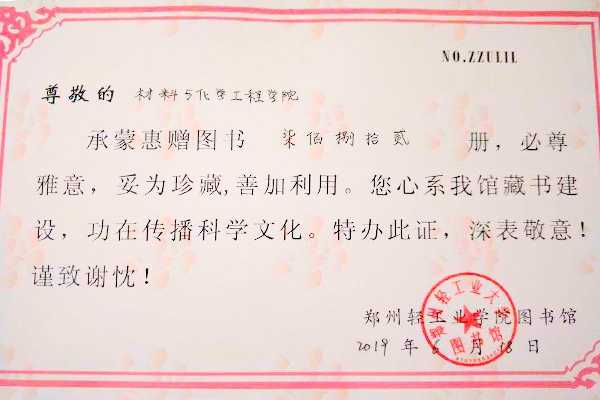 NO.ZZULIL
尊敬的 材料与化学工程学院
承蒙惠赠图书 柒佰捌拾贰 册，必尊
雅意，妥为珍藏,善加利用。您心系我馆藏书建
设，功在传播科学文化。特办此证，深表敬意！
谨致谢忱！
郑州轻工业学院图书馆
郑州轻工业大学
图书馆
2019 年 6 月 18 日